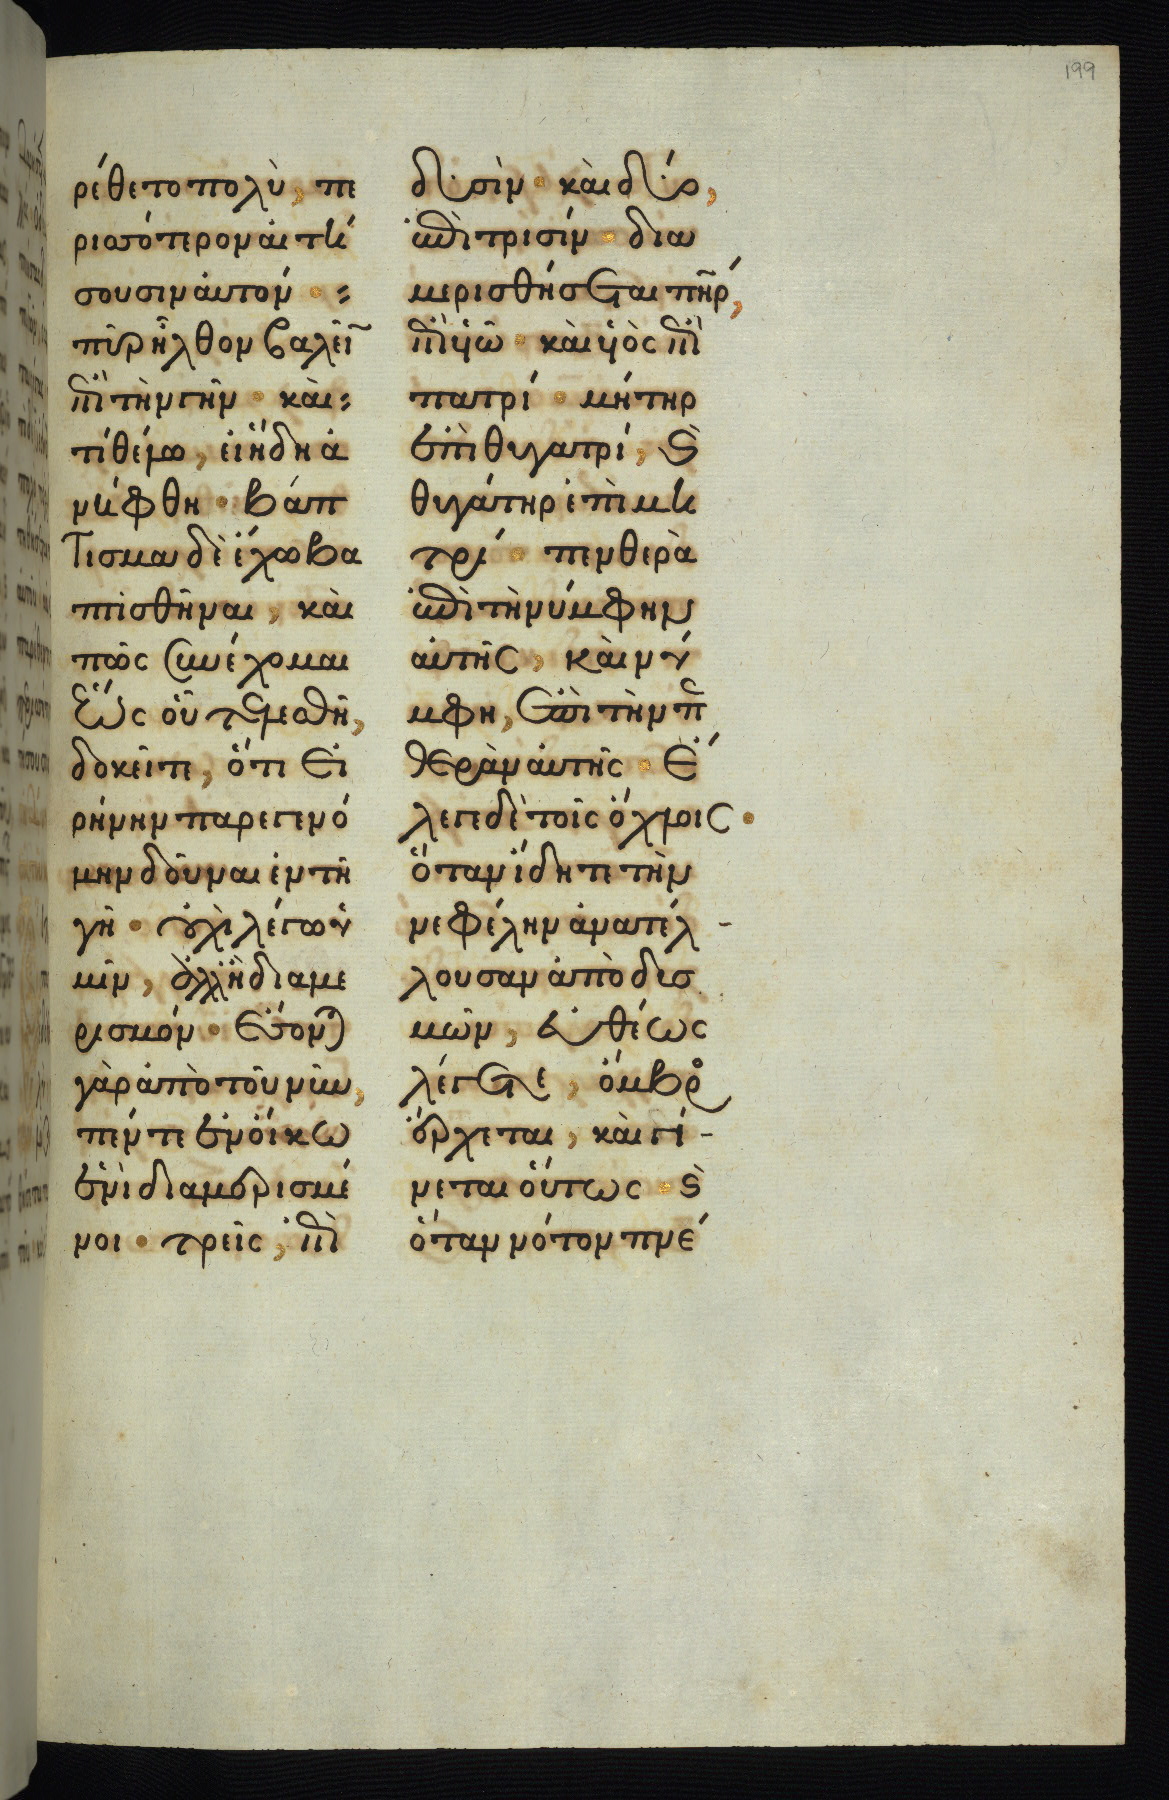 199
ρέθετο πολὺ, πε
ρισσότερον ἀιτή
σουσιν ἀυτόν
πῦρ ἦλθον βαλεῖ
ἐπὶ τὴν γῆν · κὰι
τί θέλω, ἐι ἤδη ἀ
νήφθη · βάπ
τισμα δὲ ἔχω βα
πτισθῆναι, κὰι
πῶς συνέχομαι
ἕως οὗ τελεσθῆ,
δοκεῖτε, ὅτι ἐι
ρήνην παρεγενό
μην δοῦναι ἐν τῆ
γῆ · οὐχὶ λέγω ὑ
μῖν, ἀλλ' ἢ διαμε
ρισμόν · ἔσον)
γὰρ ἀπὸ τοῦ νῦν,
πέντε ἐν ὄικω
ἑνὶ διαμερισμέ
νοι · τρεῖς, ἐπὶ
δυσὶν · κὰι δύο,
ἐπὶ τρισίν · δια
μερισθήσεται πη̄ρ,
ἐπὶ υἱῶ · κὰι υἱὸς ἐπὶ
πατρί · μήτηρ
ἐπὶ θυγατρί, ϛ̀
θυγάτηρ ἐπὶ μη
τρί · πενθερὰ
ἐπὶ τὴν νύμφην
ἀυτῆς, κὰι νύ
μφη, ἐπὶ τὴν πε̄
θερὰν ἀυτῆς · ἔ
λεγε δὲ τοῖς ὄχλοις ·
ὅταν ἴδητε τὴν
νεφέλην ἀνατέλ -
λουσαν ἀπὸ δυσ
μῶν, ἐυθέως
λέγετε, ὄμβρο
ἔρχεται, κὰι γί -
νεται ὅυτως · ϛ̀
ὅταν νότον πνέ